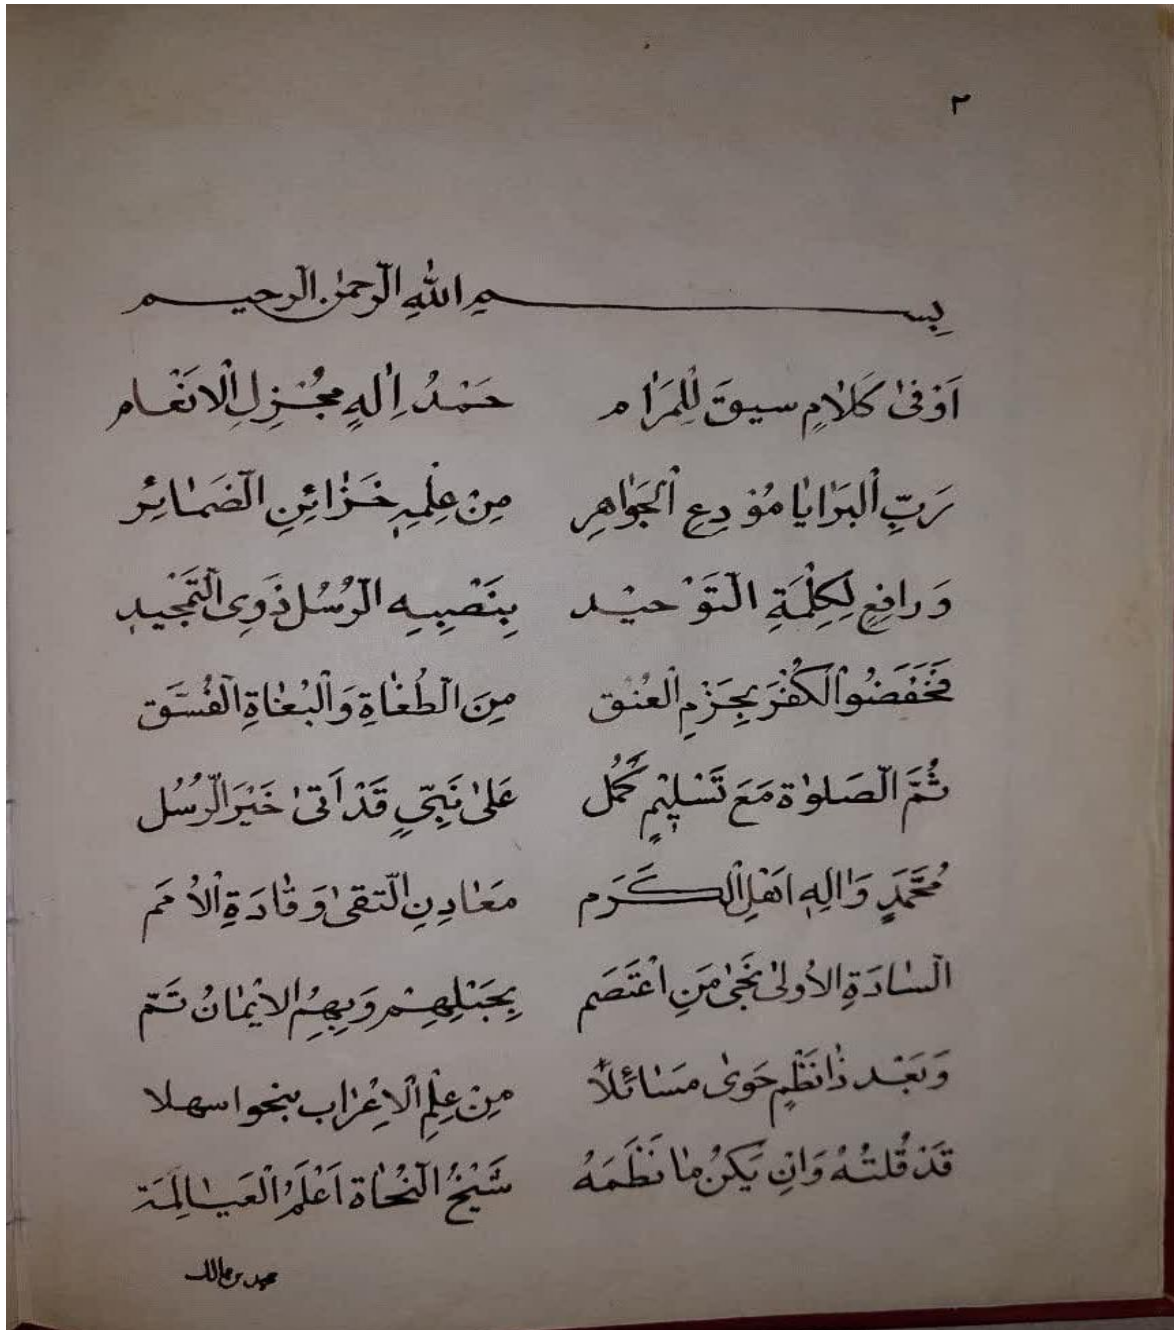 ٢
بِسمِ اللهِ الرَّحمٰنِ الرَّحیمِ
اَوْفیٰ كَلاٰمٍ سیقَ لِلْمَرٰامِ حَمْدُ اِلٰهٍ مُجْزِلِ الْاِنْعٰامِ
رَبِّ الْبَرٰایٰا مُوْدِعِ الْجَوٰاهِرِ مِنْ عِلْمِهٖ خَزٰائِنِ الضَّمٰائِرِ
وَ رافِعٍ لِكَلِمَةِ التَّوْحیْد بِنَصْبِهِ الرُّسُلَ ذَوِی التَّمْجیدِ
فَخَفَضُوا الْكُفْرَ بِجَزْمِ الْعُنُق مِنَ الطُّغٰاةِ وَالْبُغٰاةِ الْفُسَّق
ثُمَّ الصَّلوٰة مَعَ تَسْلیْمٍ كَمُل عَلیٰ نَبِیٍّ قَدْ اَتیٰ خَیْرَ الرُّسُل
مُحَمَّدٍ وَاٰلِهٖ اهْلِ الْكَرَم مَعٰادِنِ التُّقیٰ وَ قٰادَةِ الْاُمَم
السّٰادَةِ الْاُولیٰ نَجیٰ مَنِ اعْتَصَم بِحَبْلِهِمْ وَبِهِمُ الْایْمٰانُ تَمّ
وَ بَعْد ذٰا نَظْمٍ حَویٰ مَسٰائِلاً مِنْ عِلْمِ الْاِعْرٰاب بنحوا سهلا
قَدْ قُلتُهُ وَ اِنْ یَكُنْ مٰا نَظَمَهُ شَیْخُ النُّحٰاة اَعْلَمُ الْعَیٰالِمَة
محمد بن مالك